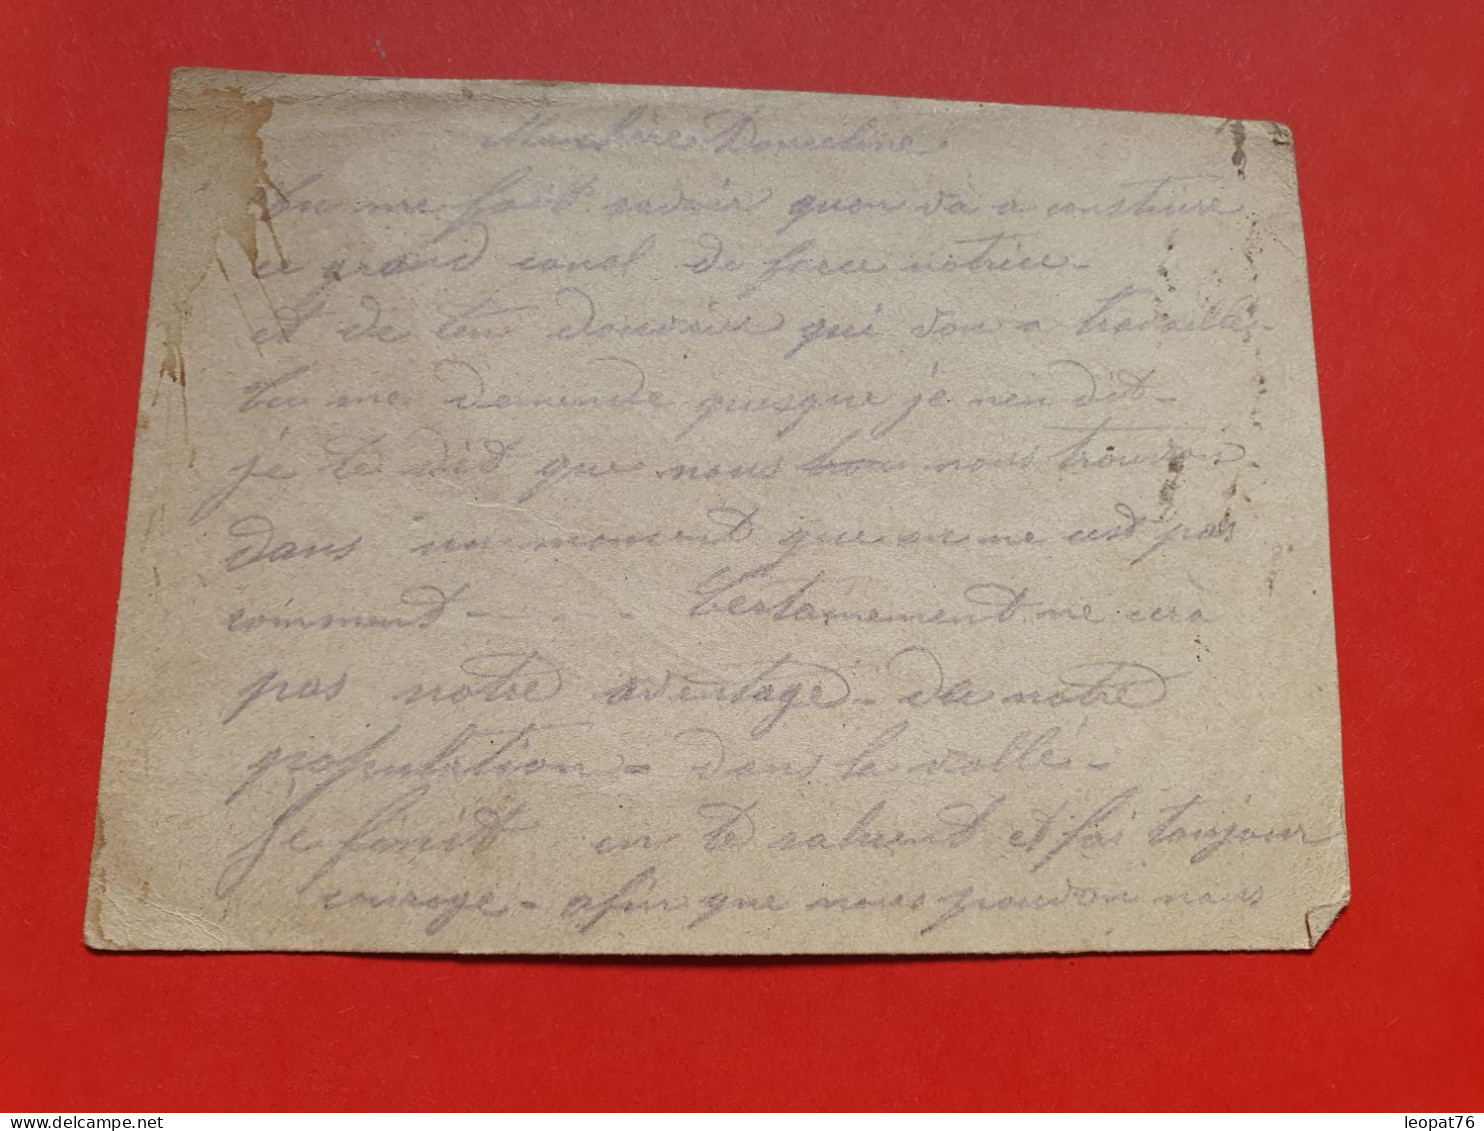 Ma chère Douceline.
tu me fait savoir quon và a construire
ce grand canal de force motrice -
et de tou douvrier qui von a travaillé -
tu me demende quesque je nen dit -
je te dit que nous nous trouvon
dans un moment que on ne est pas
comment - - - - Certainement ne cerà
pas notre aventage - de notre
population - dans la vallé -
Je finit en te saluent et fai toujour
courage - afin que nous pouvon nous
leopat76